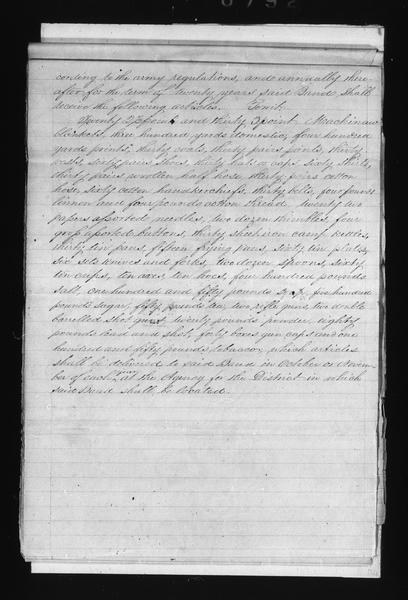 0792
cording to the army regulations, and annually there-
after for the term of twenty years said Band shall
receive the following articles. Towit:
Twenty 2½ point and thirty 3 point Mackinaw
blankets, three hundred yards domestic, four hundred
yards prints, thirty coats, thirty pairs pants, thirty
vests, sixty pairs shoes, thirty hats or caps sixty shirts,
thirty pairs woollen half hose, thirty pairs cotton
hose, sixty cotton handkerchiefs, thirty belts, four pounds
linnen and four pounds cotton thread twenty two
papers assorted needles, two dozen thimbles, four
gross assorted buttons, thirty sheet iron camp kettles,
thirty tin pans, fifteen frying pans, sixty tin plates,
six sets knives and forks, two dozen spoons, sixty
tin cups, ten axes, ten hoes, four hundred pounds
salt, one hundred and fifty pounds five hundred
pounds sugar, fifty pounds tea, two rifle guns, two double
barrelled shot guns twenty pounds powder, eighty
pounds lead and shot, forty boxes gun caps and one
hundred and fifty pounds tobacco, which articles
shall be delivered to said Band in October or Novem-
ber of each year at the Agency for the District in which
said Band shall be located.